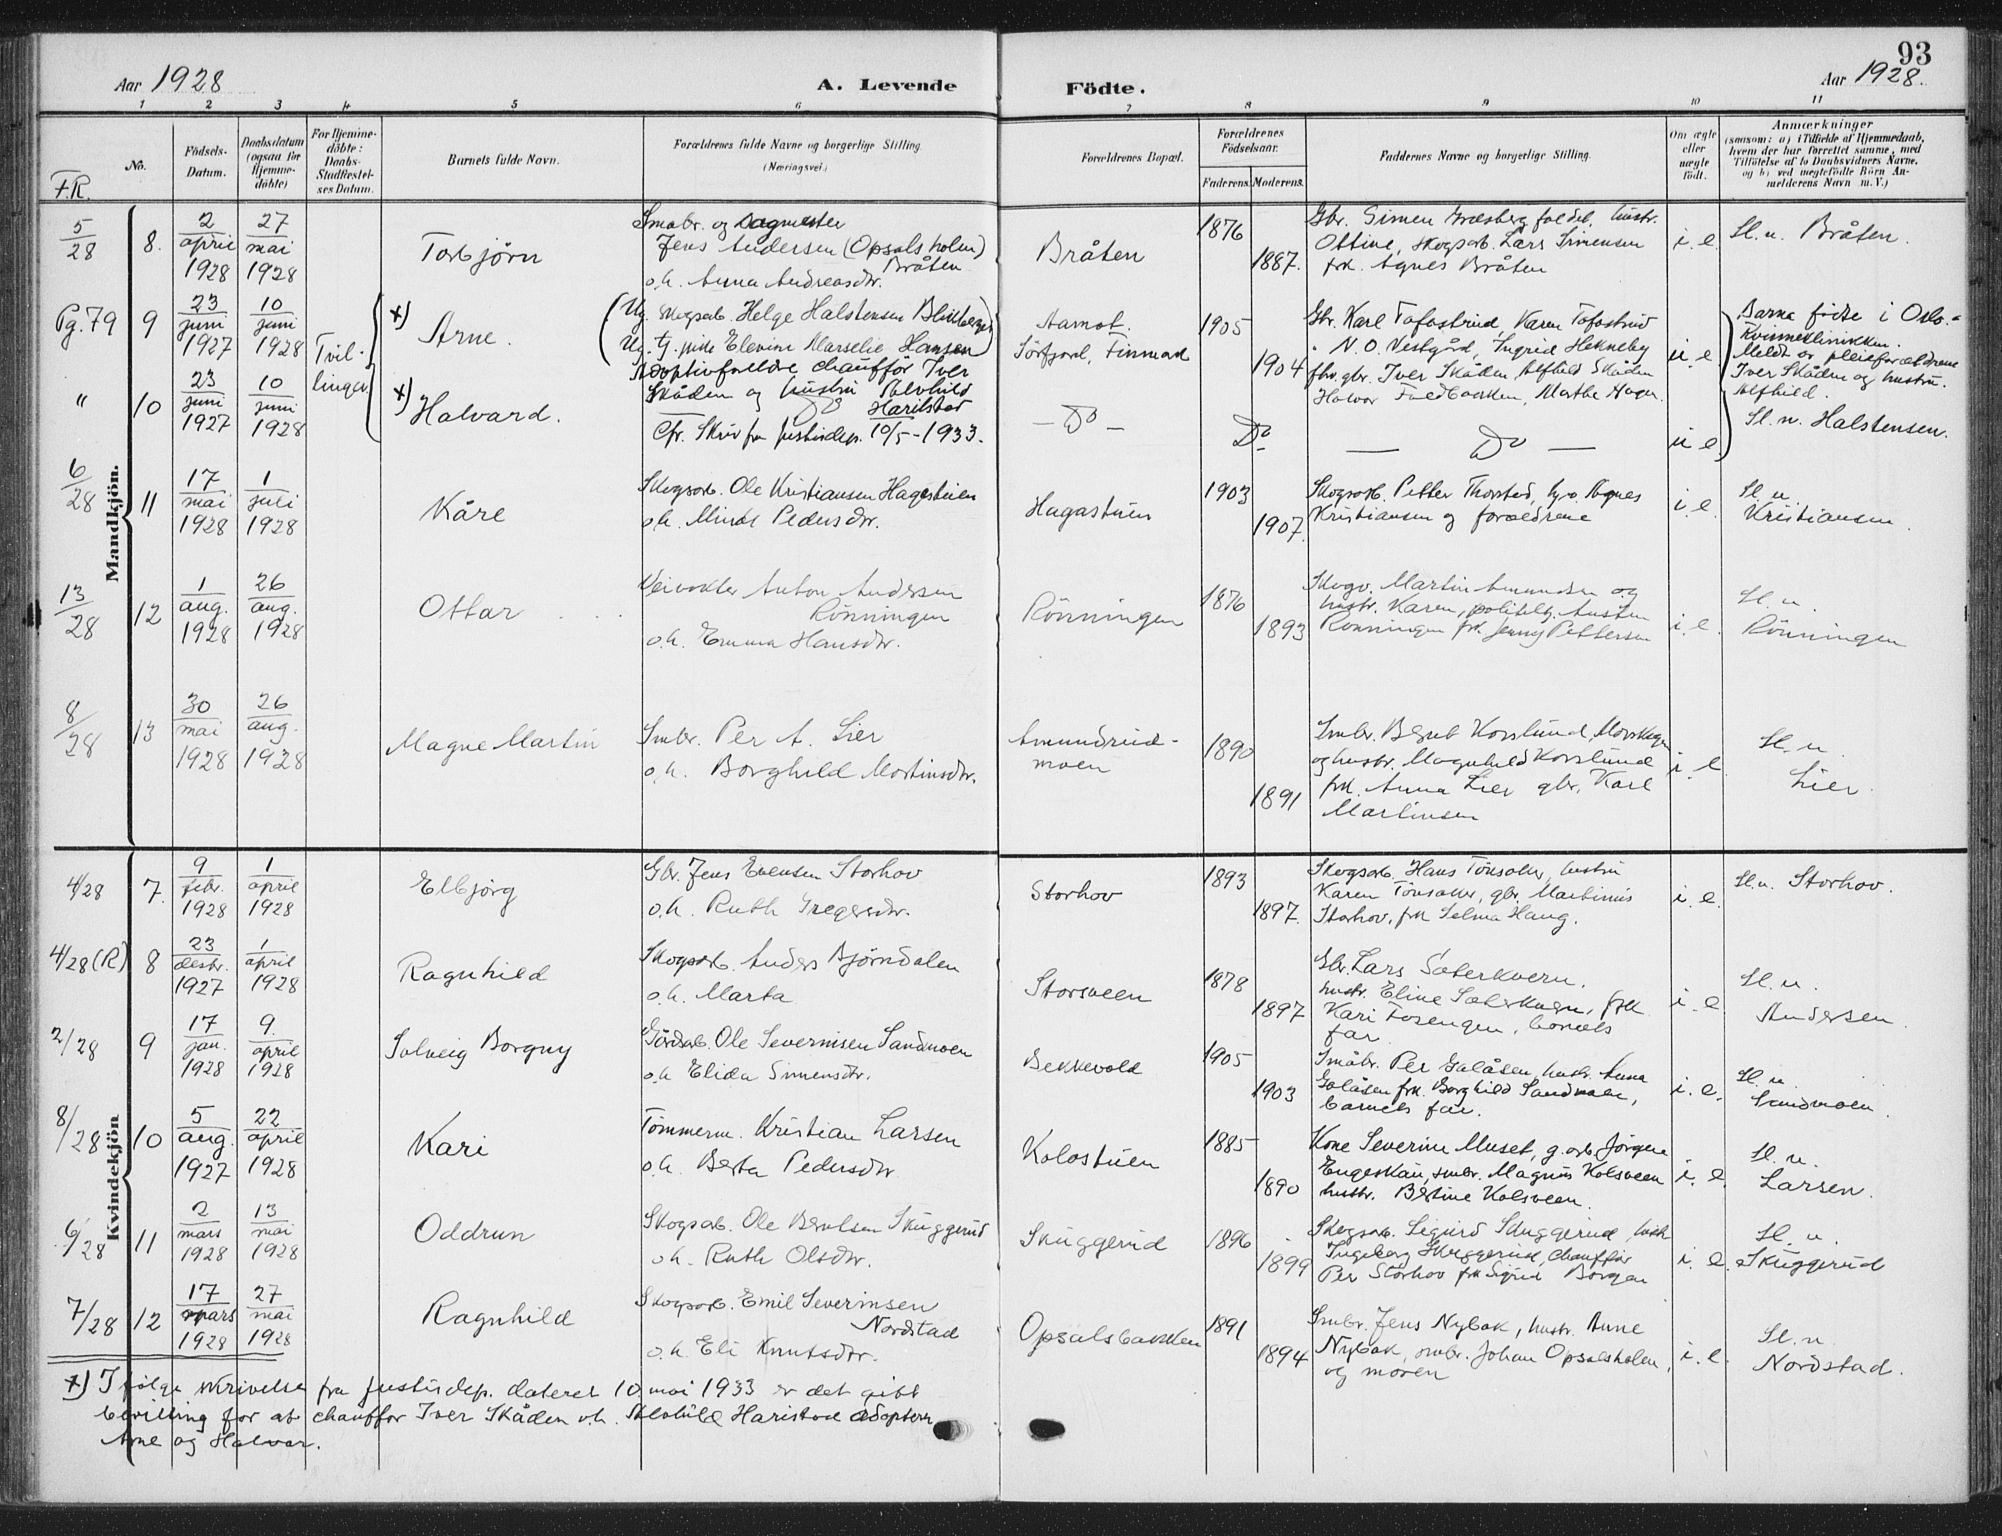 Aar 1928
A. Levende
Födte.
93
Aar 1928.
1 2 3 4 5 6 7 8 9 10 11
F.R.
No.
Födsels-
Datum.
Daabsdatum
(ogsaa for
Hjemme-
döbte)
For Hjemme-
döbte:
Daabs-
Stadfæstel-
ses Datum.
Barnets fulde Navn.
Forældrenes fulde Navne og borgerlige Stilling
(Næringsvei.)
Forældrenes Bopæl.
Forældrenes
Födselsaar.
Faderens. Moderens.
Faddernes Navne og borgerlige Stilling.
Om ægte
eller
uægte
födt.
Anmærkninger
(saasom: a) i Tilfælde af Hjemmedaab,
hvem der har forrettet samme, med
Tilföielse af to Daabsvidners Navne.
og b) ved uegtefödte Börn An-
melderens Navn m. V.)
Mandkjön.
5/28 8. 2 april 1928 27 mai 1928
Torbjörn
Småbr. og sagmester
Jens Andersen (Opsalsholm)
Bråten
o.h. Anna Andreasdtr.
Bråten
1876
1887.
Gbr. Simen Græsberg foldet, hustr.
Ottine, skogsarb. Lars Simensen
frk. Agnes Bråten
i. e.
Sl. n. Bråten.
Pg. 79 9 23 juni 1927 10 juni 1928
Tvil-
linger
x) Arne.
(Ug. skogsarb. Helge Halstensen
Ug. tj. pike Elevine Marselie Hansen)
Adoptivforeldre chauffør Iver
Skåden og hustru Alvhild
Harilstad
Cfr. Skriv fra justisdep. 10/5 - 1933.
Aamot.
Sörfjord, Finmark
1905
1904
Gbr. Karl Tofastrud, Karen Tofastrud
N. O. Vestgård, Ingrid Hekneby
fhv. gbr. Iver Skåden, Alfhild Skåden
Halvor Fuldbakken, Marthe Hagen.
u e
Barna födte i Oslo.
Kvinneklinikken.
Meldt av pleieforældrene
Iver Skåden og hustru.
Alfhild.
Sl. n. Halstensen.
" 10 23 juni 1927 10 juni 1928
x) Halvard.
Do
— Do —
Do
— Do —
u e
6/28 11 17 mai 1928 1 juli 1928
Kåre
Skogsarb. Ole Kristiansen Hagastuen
o.h. Minda Pedersdtr.
Hagastuen
1903
1907.
Skogsarb. Petter Thorstad, Agnes
Kristiansen og forældrene
i. e.
Sl. n.
Kristiansen.
13/28 12 1 aug. 1928 26 aug. 1928
Ottar
Veivokter Anton Andersen
Rönningen
o.h. Emma Hansdtr.
Rönningen
1876
1893
Skogv. Martin Amundsen og
hustr. Karen, politibtj. Austen
Rönningen frk. Jenny Pettersen
i. e.
Sl. n.
Rönningen
8/28 13 30 mai 1928 26 aug. 1928
Magne Martin
Smbr. Per A. Lier
o.h. Borghild Martinsdtr.
Amundrud-
moen
1890
1891
Smbr. Bernt Korslund, Morskogen
og hustr. Magnhild Korslund
frk. Anna Lier gbr. Karl
Martinsen
i. e
Sl. n
Lier.
Kvindekjön
4/28 7. 9 febr. 1928 1 april 1928
Elbjörg
Gbr. Jens Evensen Storhov
o.h. Ruth Gregersdtr.
Storhov
1893
1897.
Skogsarb. Hans Tönsaker, hustru
Karen Tönsaker, gbr. Martinius
Storhov, frk Selma Haug.
i. e.
Sl. n. Storhov.
4/28 (R) 8 23 desbr. 1927 1 april 1928
Ragnhild
Skogsarb. Anders Björndalen
o.h. Marta
Storsveen
1878
1897
Gbr. Lars Säterkvern,
hustr. Eline Säterkvern, frk.
Kari Fosengen, barnets
far
i. e
Sl. n.
Andersen.
2/28 9 17 jan. 1928 9. april 1928
Solveig Borgny
Gårdsarb. Ole Severinsen Sandmoen
o.h Elida Simensdtr.
Bekkevold
1905
1903
Småbr. Per Galåsen, hustr. Anna
Galåsen frk. Borghild Sandmoen,
barnets far.
i. e.
Sl. n.
Sandmoen.
8/28 10 5 aug. 1927 22 april 1928
Kari
Tömmerm. Kristian Larsen
o.h. Berta Pedersdtr.
Kolostuen
1885
1890
Kone Severine Muset, g.arb. Jörgen
Engeskau, smbr. Magnus Kolsveen
hustr. Bertine Kolsveen.
i. e.
Sl. n.
Larsen.
6/28 11 2 mars 1928 13 mai 1928
Oddrun
Skogsarb. Ole Berntsen Skuggerud
o.h. Ruth Olsdtr.
Skuggerud
1896
1899
Skogsarb. Sigurd Skuggerud, hustr
Ingeborg Skuggerud, chauffør
Per Storhov frk Sigrid Borgen
i. e.
Sl. n.
Skuggerud
7/28 12 17 mars 1928 27 mai 1928
Ragnhild
Skogsarb. Emil Severinsen
Nordstad
o.h. Eli Knutsdtr.
Opsalsbakken
1891
1894
Smbr. Jens Nybak, hustr. Anne
Nybak, smbr. Johan Opsalsholen,
og moren
i. e.
Sl. n.
Nordstad.
x) I følge skrivelse fra justisdep. dateret 10 mai 1933 er det gitt
bevilling for at chauffør Iver Skåden o.h. Alvhild Haristad adopterer
Arne og Halvar.